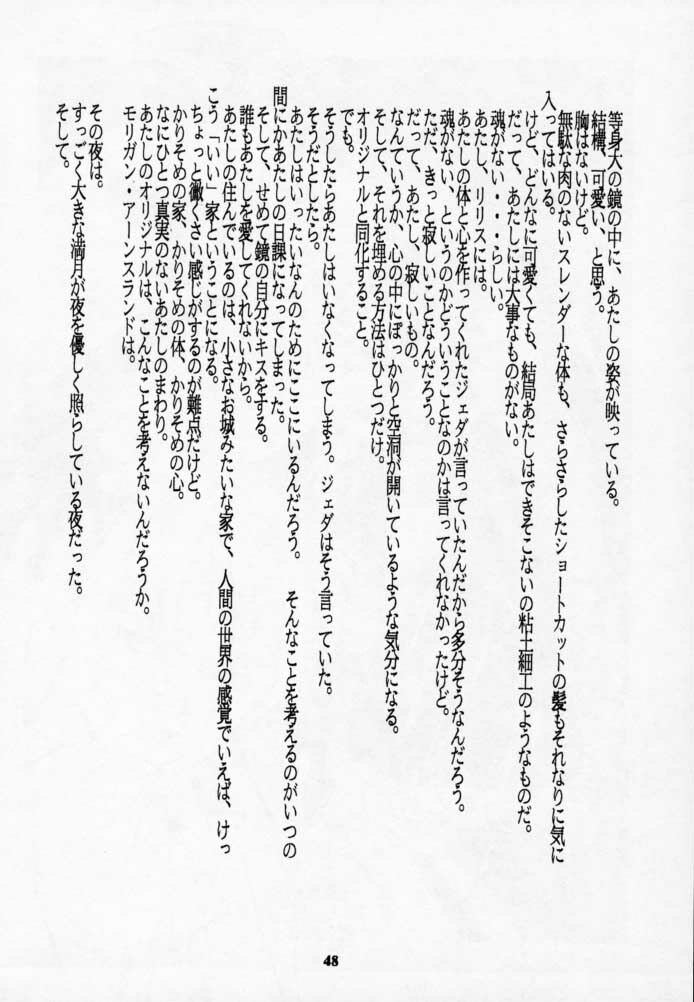 等身大の鏡の中に、あたしの姿が映っている。
結構、可愛い、と思う。
胸はないけど。
無駄な肉のないスレンダーな体も、さらさらしたショートカットの髪もそれなりに気に
入ってはいる。
けど、どんなに可愛くても、結局あたしはできそこないの粘土細工のようなものだ。
だって、あたしには大事なものがない。
魂がない・・・らしい。
あたし、リリスには。
あたしの体と心を作ってくれたジェダが言っていたんだから多分そうなんだろう。
魂がない、というのかどういうことなのかは言ってくれなかったけど。
ただ、きっと寂しいことなんだろう。
だって、あたし、寂しいもの。
なんていうか、心の中にぽっかりと空洞が開いているような気分になる。
そして、それを埋める方法はひとつだけ。
オリジナルと同化すること。
でも。
そうしたらあたしはいなくなってしまう。ジェダはそう言っていた。
そうだとしたら。
あたしはいったいなんのためにここにいるんだろう。　そんなことを考えるのがいつの
間にかあたしの日課になってしまった。
そして、せめて鏡の自分にキスをする。
誰もあたしを愛してくれないから。
あたしの住んでいるのは、小さなお城みたいな家で、人間の世界の感覚でいえば、けっ
こう「いい」家ということになる。
ちょっと黴くさい感じがするのが難点だけど。
かりそめの家、かりそめの体、かりそめの心。
なにひとつ真実のないあたしのまわり。
あたしのオリジナルは、こんなことを考えないんだろうか。
モリガン・アーンスランドは。
その夜は。
すっごく大きな満月が夜を優しく照らしている夜だった。
そして。
48